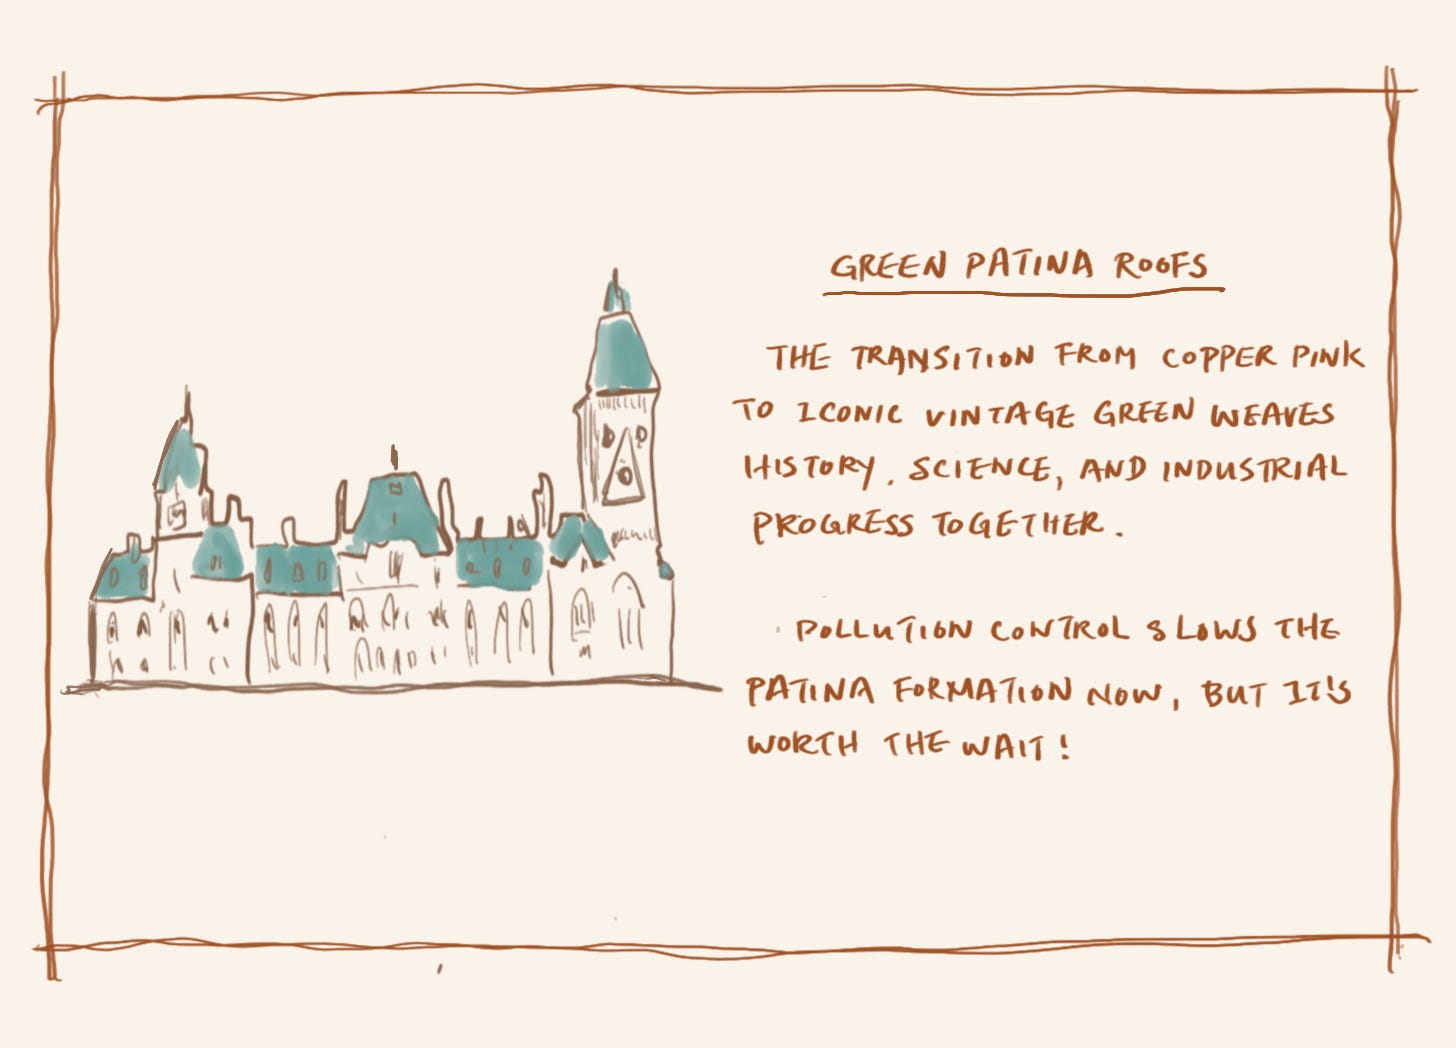 GREEN PATINA ROOFS
THE TRANSITION FROM COPPER PINK
TO ICONIC VINTAGE GREEN WEAVES
HISTORY, SCIENCE, AND INDUSTRIAL
PROGRESS TOGETHER.
POLLUTION CONTROL SLOWS THE
PATINA FORMATION NOW, BUT IT'S
WORTH THE WAIT!